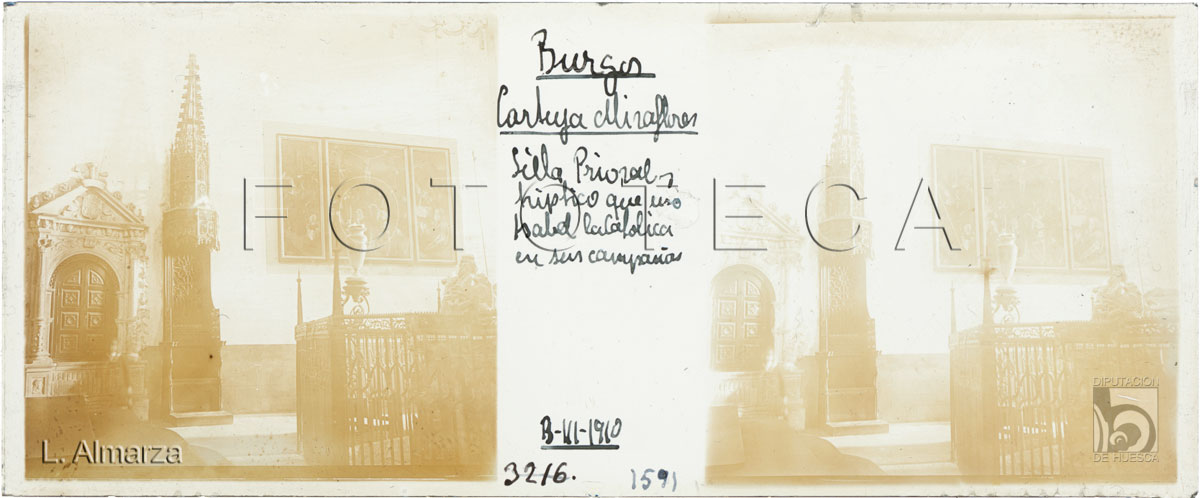 Burgos
Cartuja Miraflores
Silla Prioral y
triptico que usó
Isabel la Catolica
en sus campañas
FOTOTECA
DIPUTACIÓN
DE HUESCA
L. Almarza
1910
3216.
1591